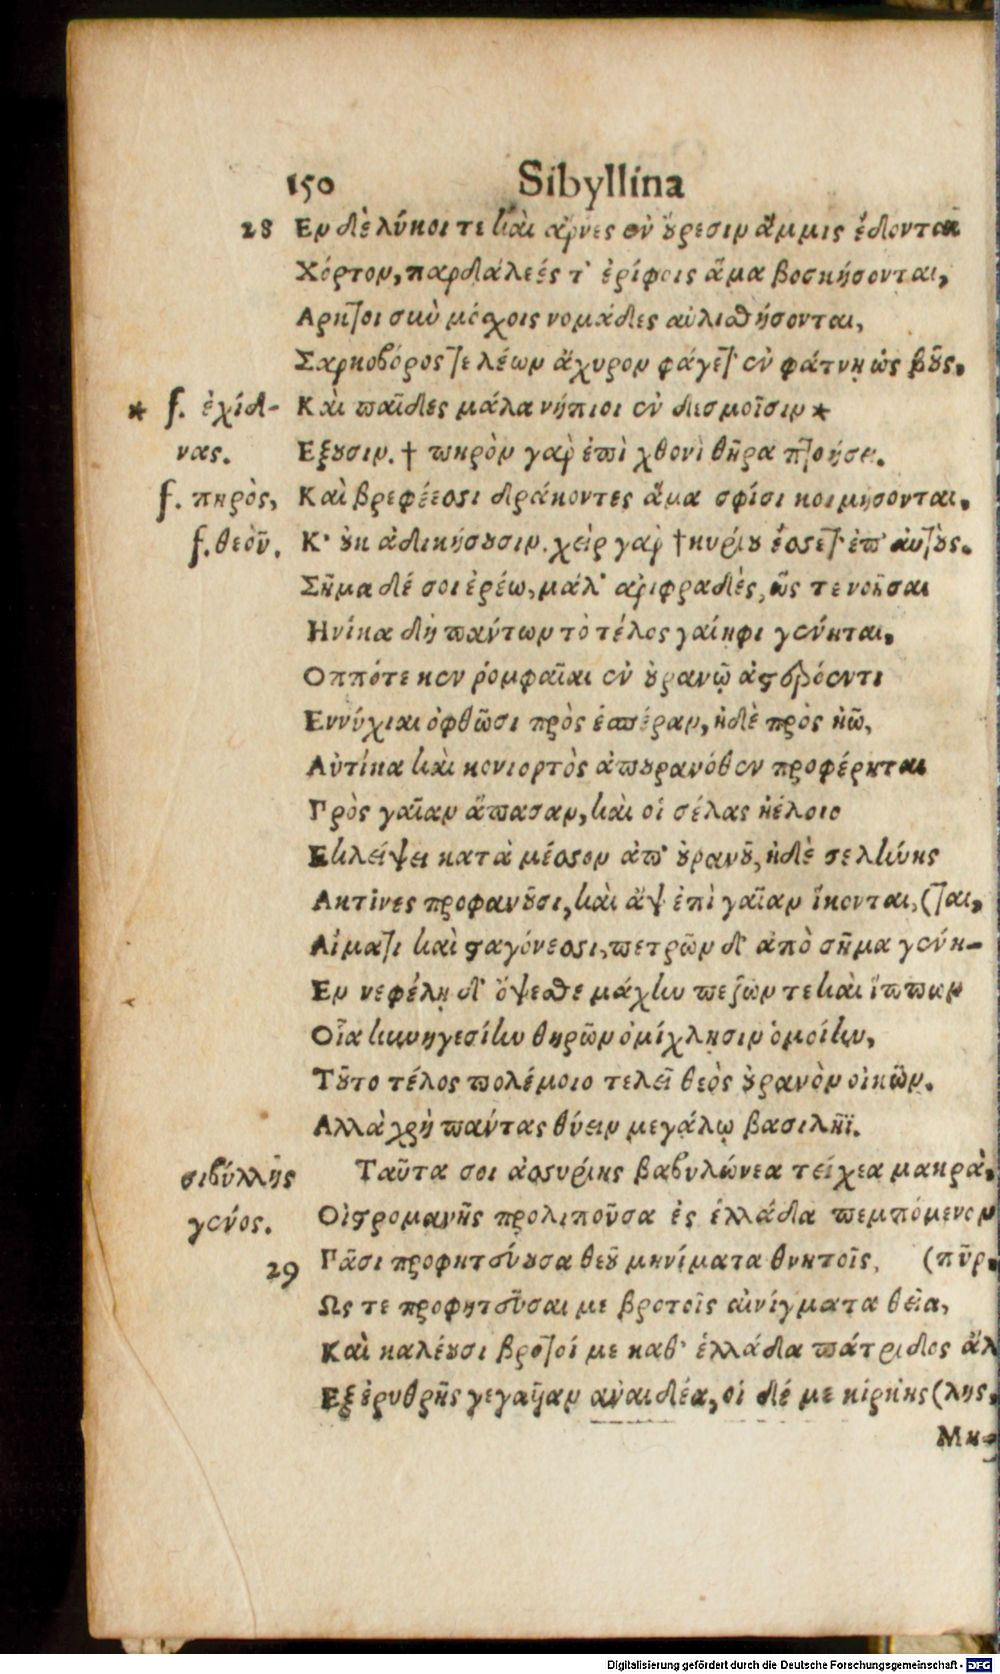 150 Sibyllina
28 Εν δὲ λύκοι τε καὶ ἄρνες ἐν ὄρεσιν ἄμμις ἔδονται
Χόρτον, παρδάλεές τ' ἐρίφοις ἅμα βοσκήσονται,
Αρκτοι σὺν μόσχοις νομάδες αὐλισθήσονται,
Σαρκοβόρος τε λέων ἄχυρον φάγετ' ἐν φάτνῃ ὡς βοῦς.
* f. ἐχίδ- Καὶ παῖδες μάλα νήπιοι ἐν δεσμοῖσιν *
νας. Εξουσιν. † πηρὸν γὰρ ἐπὶ χθονὶ θῆρα ποιήσει.
f. πηρὸς, Καὶ βρεφέεσσι δράκοντες ἅμα σφίσι κοιμήσονται.
f. θεοῦ. Κ' οὐκ ἀδικήσουσιν. χεὶρ γὰρ † κυρίου ἔσσετ' ἐπ' αὐτούς.
Σῆμα δέ σοι ἐρέω, μάλ' ἀριφραδὲς, ὥς τε νοῆσαι
Ηνίκα δὴ πάντων τὸ τέλος γαίηφι γένηται,
Οππότε κεν ῥομφαῖαι ἐν οὐρανῷ ἀστρόεντι
Εννύχιαι ὀφθῶσι πρὸς ἑσπέραν, ἠδὲ πρὸς ἠῶ,
Αὐτίκα καὶ κονιορτὸς ἀπουρανόθεν προφέρηται
Πρὸς γαῖαν ἅπασαν, καὶ οἱ σέλας ἠέλοιο
Εκλείψει κατὰ μέσσον ἀπ' οὐρανοῦ, ἠδὲ σελήνης
Ακτῖνες προφανοῦσι, καὶ ἂψ ἐπὶ γαῖαν ἵκονται, (ται,
Αἵματι καὶ σταγόνεσσι, πετρῶν δ' ἀπὸ σῆμα γένη-
Εν νεφέλῃ δ' ὄψεσθε μάχην πεζῶν τε καὶ ἵππων
Οἷα κυνηγεσίην θηρῶν ὀμίχλησιν ὁμοίην,
Τοῦτο τέλος πολέμοιο τελεῖ θεὸς οὐρανὸν οἰκῶν.
Αλλὰ χρὴ πάντας θύειν μεγάλῳ βασιλῆϊ.
σιβύλλης Ταῦτα σοι ἀσσυρίης βαβυλώνεα τείχεα μακρὰ,
γένος. Οἰστρομανὴς προλιποῦσα ἐς ἑλλάδα πεμπόμενον
29 Πᾶσι προφητεύουσα θεοῦ μηνίματα θνητοῖς, (πῦρ.
Ως τε προφητεῦσαι με βροτοῖς αἰνίγματα θεῖα,
Καὶ καλέουσι βροτοί με καθ' ἑλλάδα πάτριδος ἄλ
Εξ ἐρυθρῆς γεγαῆαν ἀναιδέα, οἱ δέ με κίρκης (λης,
Μη-
Digitalisierung gefördert durch die Deutsche Forschungsgemeinschaft - DFG